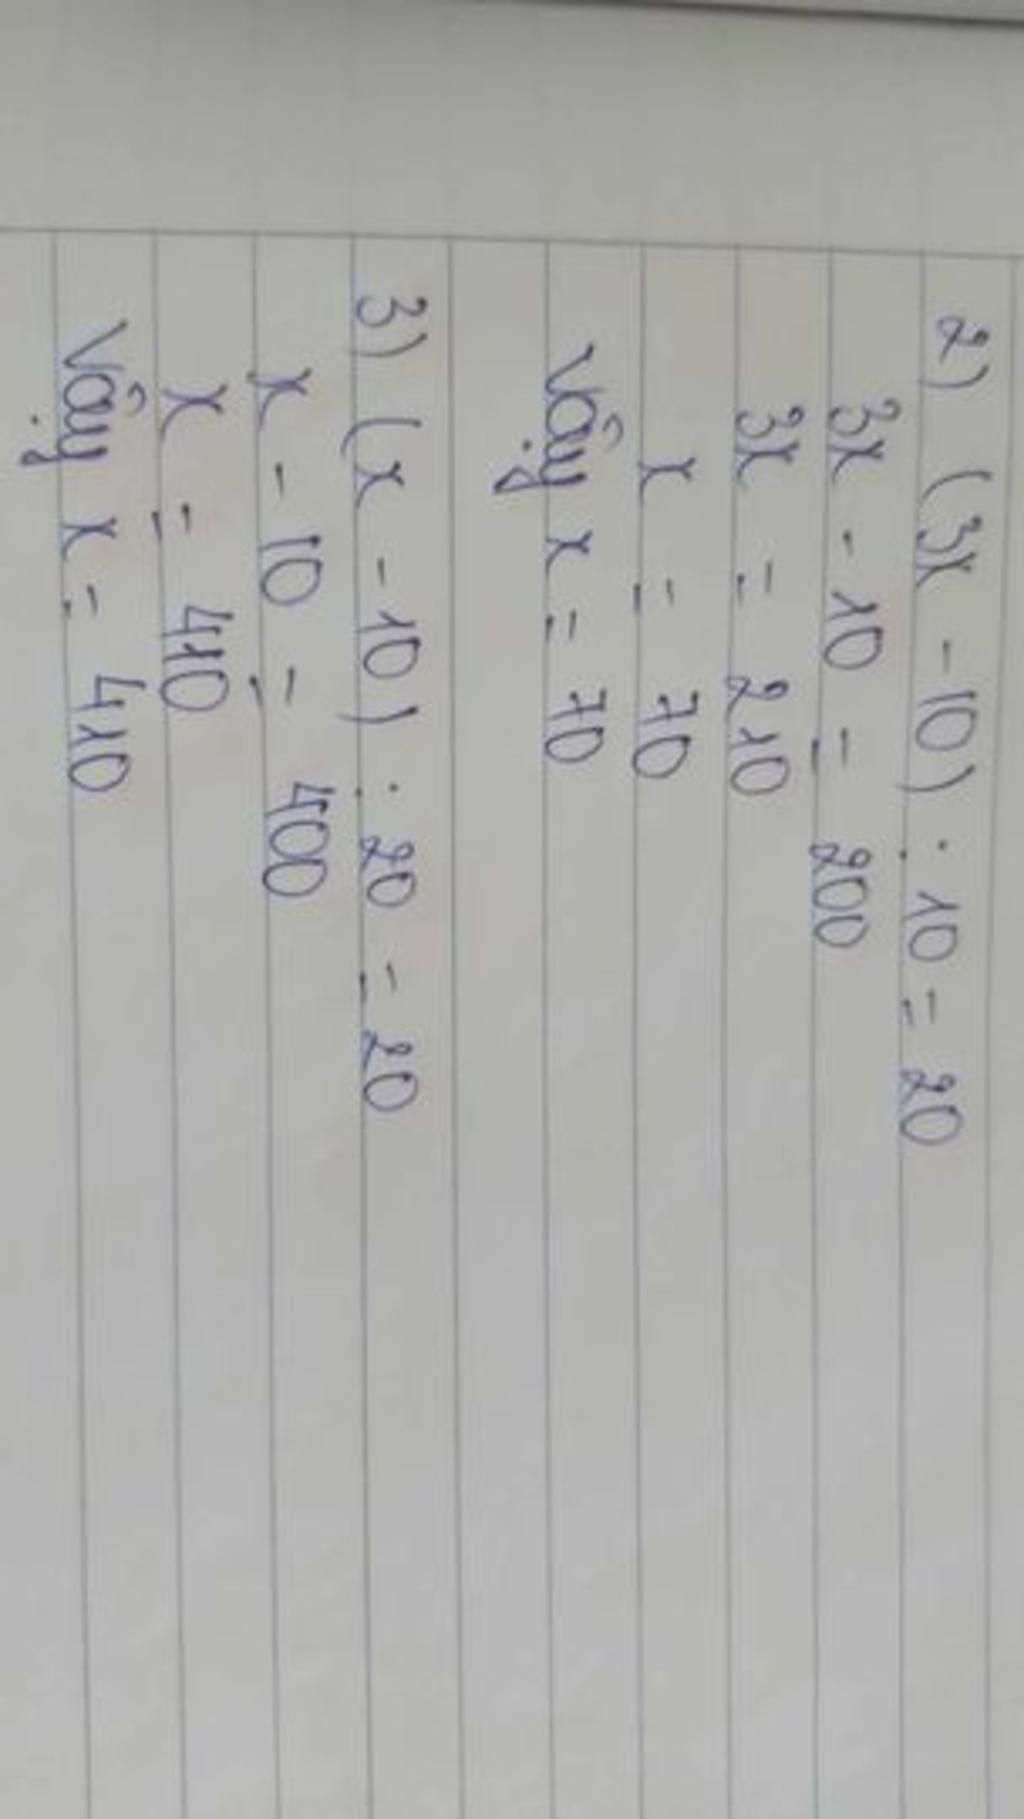 2) (3x - 10) : 10 = 20
3x - 10 = 200
3x = 210
x = 70
Vậy x = 70
3) (x - 10) : 20 = 20
x - 10 = 400
x = 410
Vậy x = 410